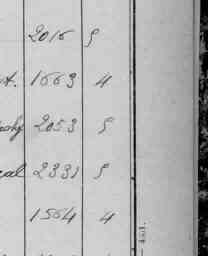 2016 5
t. 1663 4
2053 5
al 2331 5
1564 4